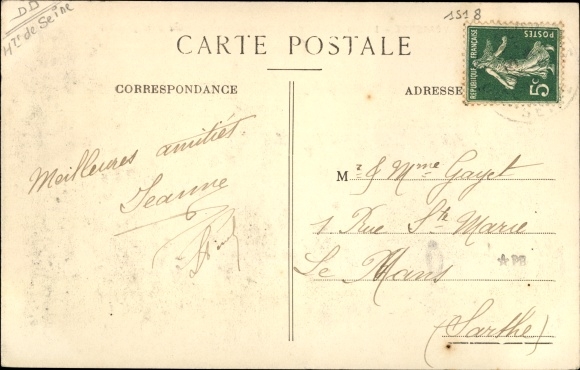 DD
Hte de Seine
1518
CARTE POSTALE
CORRESPONDANCE
ADRESSE
RÉPUBLIQUE FRANÇAISE
POSTES
5c
Meilleures amitiés.
Jeanne
Mr & Mme Gayet
1 Rue Ste Marie
Le Mans
(Sarthe)